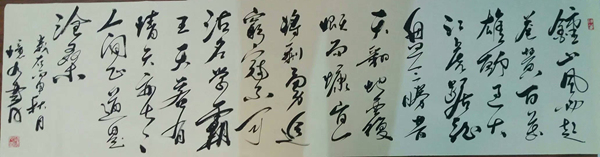 鍾山風雨起
蒼黄百萬
雄師過大
江虎踞龍
盤今勝昔
天翻地覆
慨而慷宜
將剩勇追
窮寇不可
沽名學霸
王天若有
情天亦老
人间正道是
滄桑
歲在丙申秋月